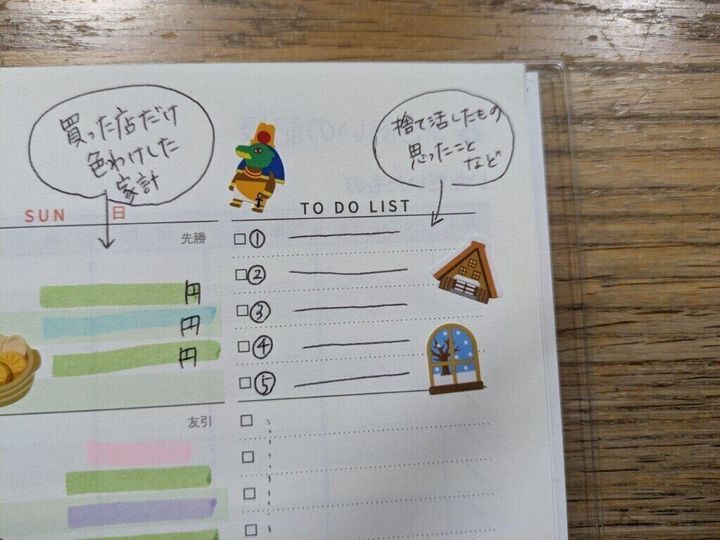 買った店だけ
色わけした
家計
捨て活したもの
思ったこと
など
SUN 日
TO DO LIST
先勝
①
②
③
④
⑤
円
円
円
友引